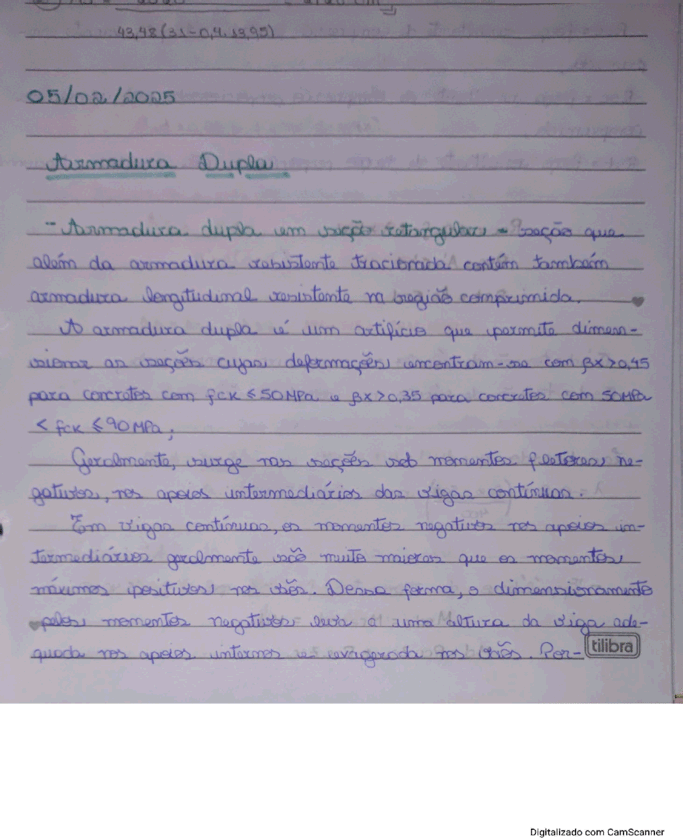 43,48 (31 - 0,4 . 13,95)
05/02/2025
Armadura Dupla
- Armadura dupla em seção retangular - Seção que
além da armadura resistente tracionada contém também
armadura longitudinal resistente na região comprimida.
A armadura dupla é um artifício que permite dimen-
sionar as seções cujas deformações encontram-se com βx > 0,45
para concretos com fck ≤ 50 MPa e βx > 0,35 para concretos com 50MPa
< fck ≤ 90 MPa;
Geralmente, surge nas seções sob momentos fletores ne-
gativos, nos apoios intermediários das vigas contínuas.
Em vigas contínuas, os momentos negativos nos apoios in-
termediários geralmente são muito maiores que os momentos
máximos positivos nos vãos. Dessa forma, o dimensionamento
pelos momentos negativos leva a uma altura da viga ade-
quada nos apoios internos e exagerada nos vãos. Por-
tilibra
Digitalizado com CamScanner